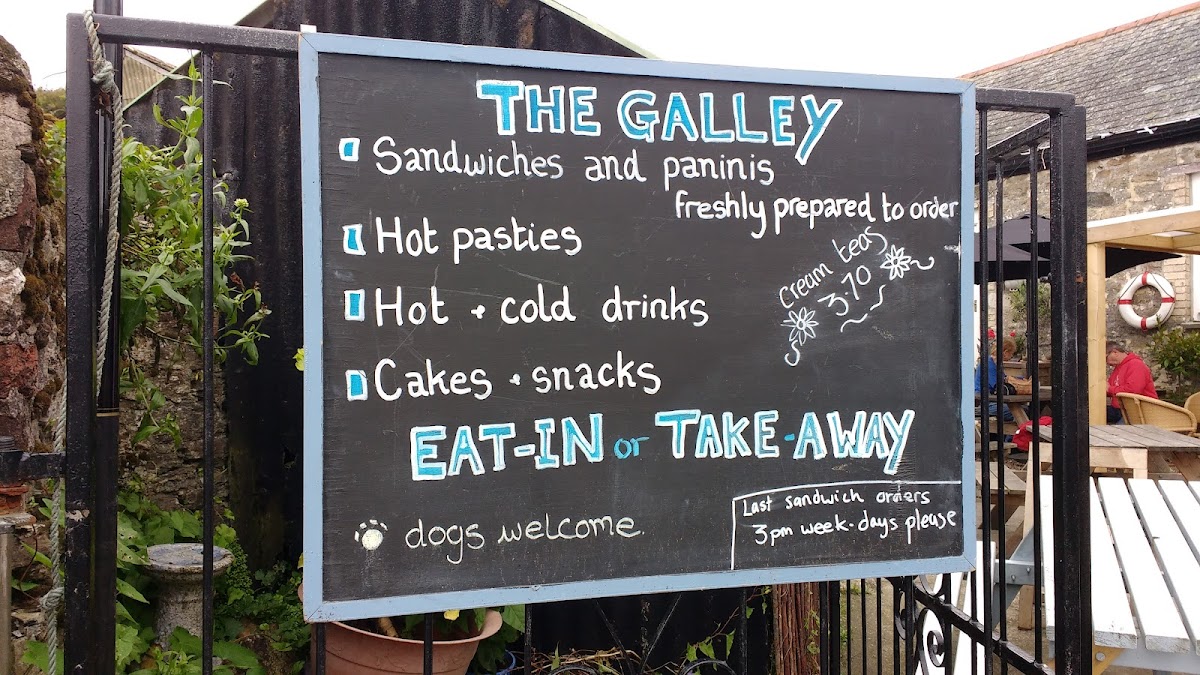 THE GALLEY
Sandwiches and paninis
freshly prepared to order
Hot pasties
Cream teas
3.70
Hot + cold drinks
Cakes + snacks
EAT-IN or TAKE-AWAY
dogs welcome.
Last sandwich orders
3pm week-days please